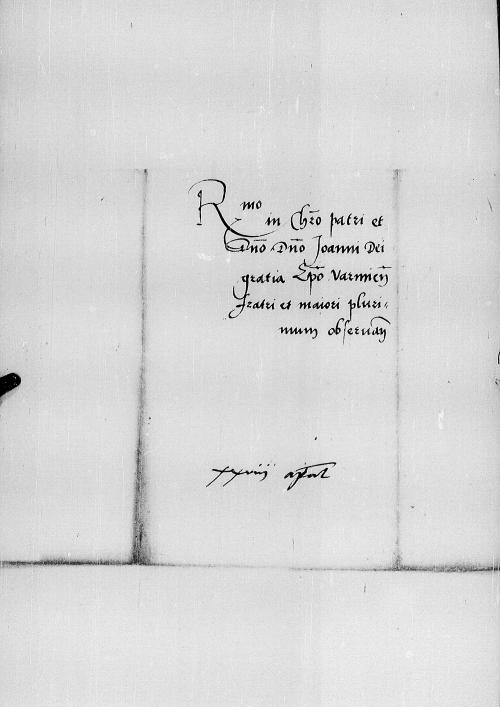 Rmo
in Chr̄o patri et
Dn̄o Dn̄o Joanni Dei
gratia Ep̄o Varmien̄
fratri et maiori pluri-
mum obseruan̄
xxviij